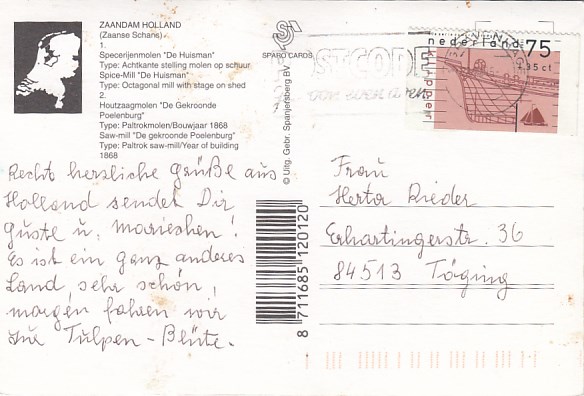 ZAANDAM HOLLAND
(Zaanse Schans)
1.
Specerijenmolen "De Huisman"
Type: Achtkante stelling molen op schuur
Spice-Mill "De Huisman"
Type: Octagonal mill with stage on shed
2.
Houtzaagmolen "De Gekroonde
Poelenburg"
Type: Paltrokmolen/Bouwjaar 1868
Saw-mill "De gekroonde Poelenburg"
Type: Paltrok saw-mill/Year of building
1868
Recht herzliche Grüße aus
Holland sendet Dir
Gustl u. Mariechen!
Es ist ein ganz anderes
Land, sehr schön,
morgen fahren wir
zur Tulpen-Blüte.
SPARO CARDS
© Uitg. Gebr. Spanjersberg BV
8 711685 120120
POSTCODE
nederland 75
35 ct
Frau
Herta Rieder
Erhartingerstr. 36
84513 Töging